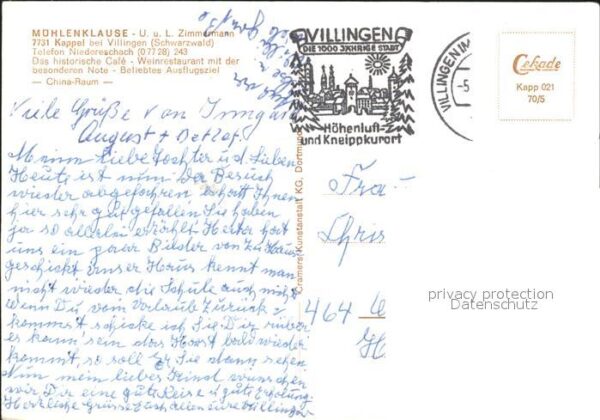 MÜHLENKLAUSE - U. u. L. Zimmermann
7731 Kappel bei Villingen (Schwarzwald)
Telefon Niedereschach (07728) 243
Das historische Café - Weinrestaurant mit der
besonderen Note - Beliebtes Ausflugsziel
— China-Raum —
Viele Grüße von Irmgard
August + Detlef
Meine liebe Tochter u. d. Lieben
Heute ist nun der Besuch
wieder abgefahren es hatt Ihnen
hier sehr gut gefallen Sie haben
ja so allerlei erzählt Herta hat
uns ein paar Bilder von Zu Haus
geschickt unser Haus kennt man
nicht wieder die Schule auch nicht
wenn Du vom Uhrlaub Zurück
kommst schicke ich Sie Dir rüber
es kann sein das Horst bald wieder
kommt, so soll Er Sie dann sehen
Nun mein liebes Kind wünschen
wir Dir eine gute Reise u. gute Erholung
Herzliche Grüsse auch allen eure Villinger
VILLINGEN
DIE 1000 JÄHRIGE STADT
Höhenluft-
und Kneippkurort
VILLINGEN IM
-5.
Cekade
Kapp 021
70/5
Cramers Kunstanstalt KG, Dortmund
Frau
Chris
464
privacy protection
Datenschutz